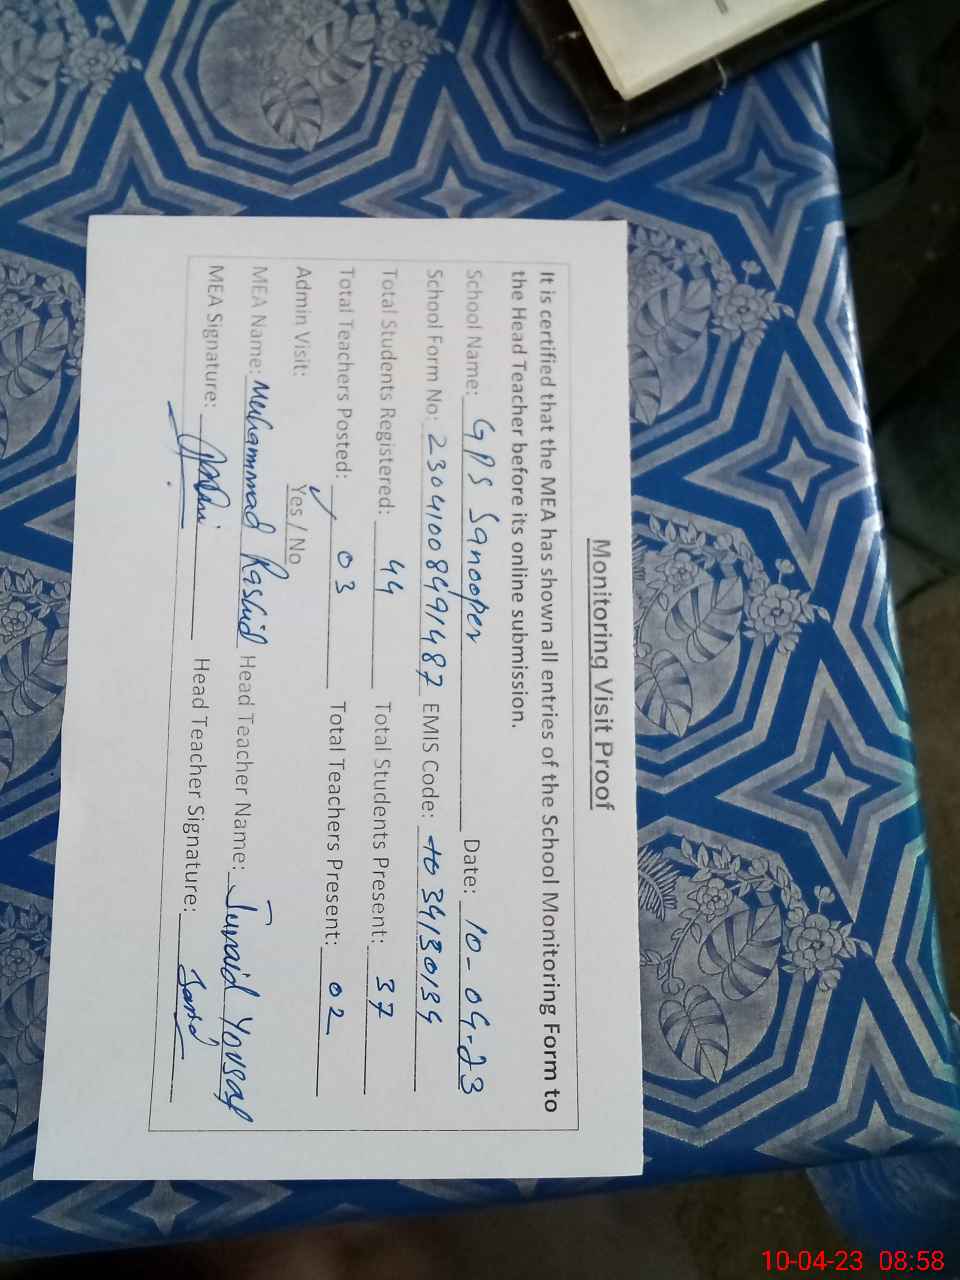 Monitoring Visit Proof
It is certified that the MEA has shown all entries of the School Monitoring Form to
the Head Teacher before its online submission.
School Name: GPS Sanooper Date: 10-04-23
School Form No: 23041008491487 EMIS Code: 34130134
Total Students Registered: 44 Total Students Present: 37
Total Teachers Posted: 03 Total Teachers Present: 02
Admin Visit: Yes / No
MEA Name: Muhammad Rashid Head Teacher Name: Junaid Yousaf
MEA Signature: Head Teacher Signature:
10-04-23 08:58